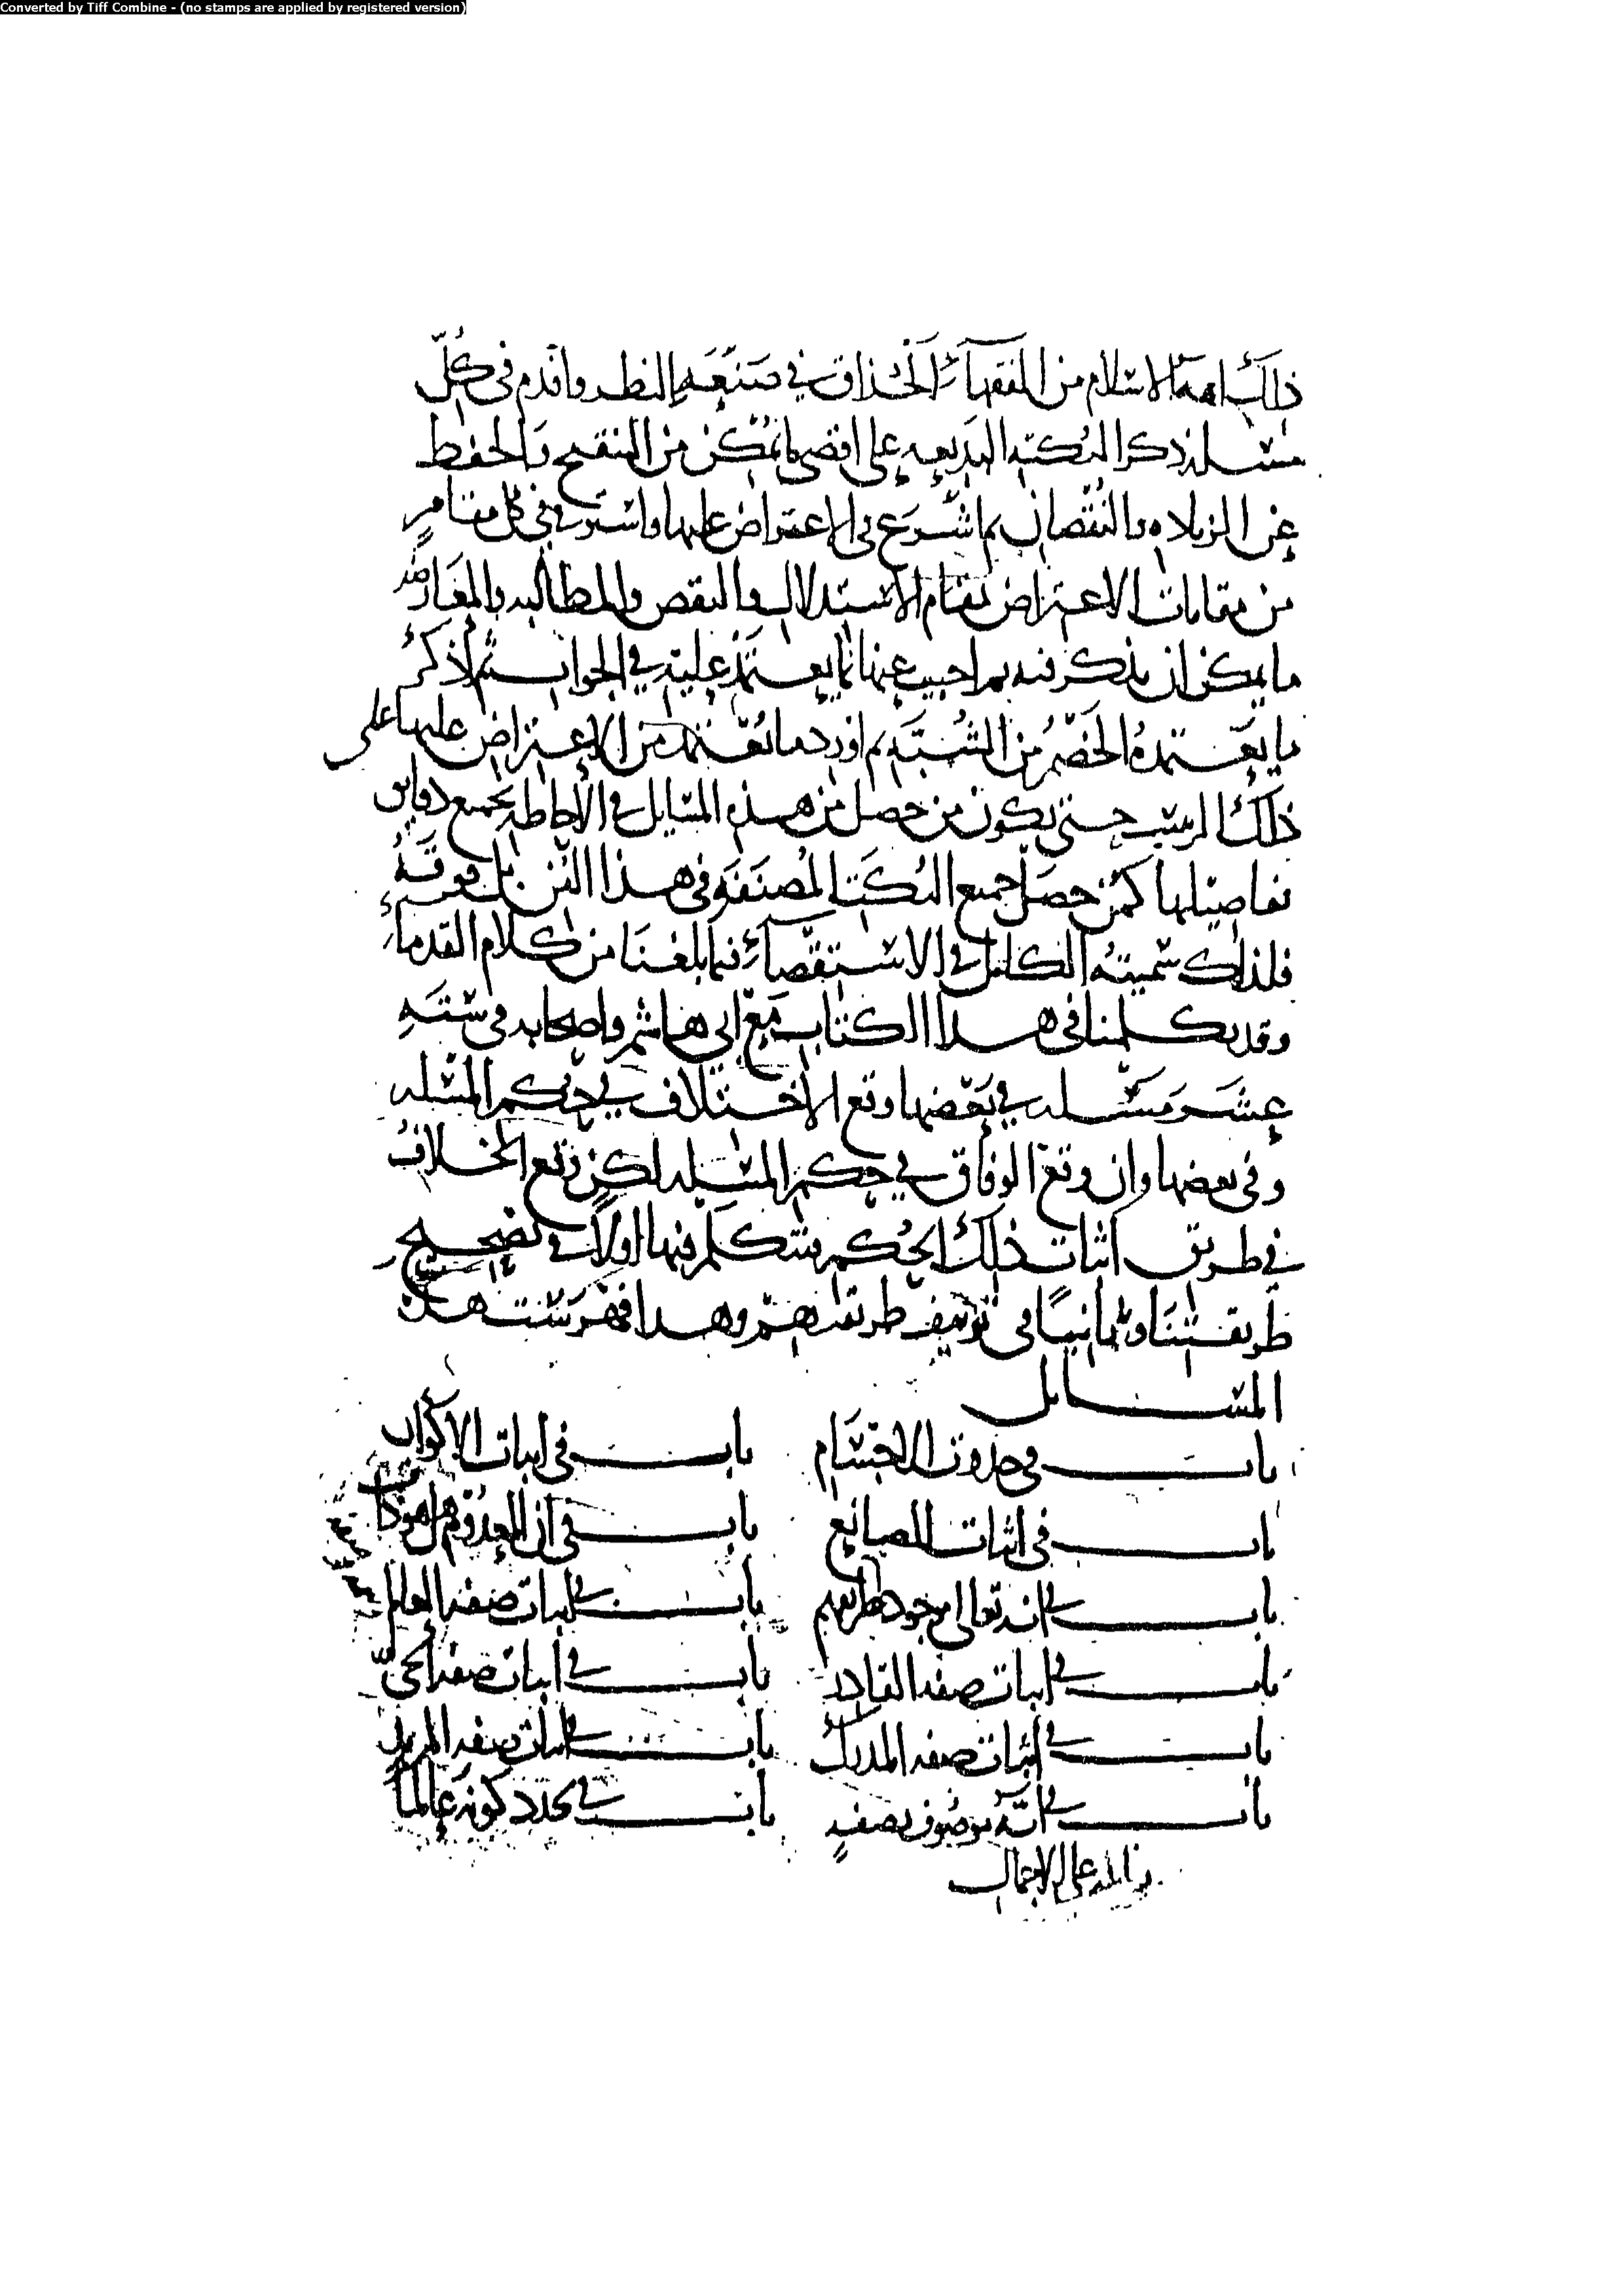 Converted by Tiff Combine - (no stamps are applied by registered version)
ذلك ائمة الاسلام من الفقهآءِ الحُذاق في صَنْعَةِ النظر واقدم في كُلّ
مسئلة ذكر النكتة البديعه على اقصى ما يُمْكن من التنقيح والحفظ
عن الزيادة والنُقْصان ثم اشْرَع في الاعتراض عليها واستوفي في كل مقامٍ
من مقامات الاعتراض مقام الاستدلال والنقض والمطالبه والمعارضه
ما يمكن ان يذكر فيه ثم اجيب عنها بما يعتمد عليه في الجواب ثم اذكرُ
ما يعتمدهُ الخصْمُ من الشُبَه ثم اورد ما يُعْتمد من الاعتراض عليها على
ذلك الترتيب حتى يكون من حصل من هذه المسايل في الاحاطة بجميع دقايق
تفاصيلها كمن حصَل جميع الكتب المُصنَفَه في هذا الفن بل فوقَهُ
فلذلك سميتهُ الكامل في الاستقصآءِ فيما بلغنا من كلام القدمآءِ
وقد تكلمنا في هذا الكتاب مع ابي هاشم واصحابه في ستَةِ
عشَرَ مَسْئله في بعْضها وقع الاختلاف في حكم المسْئله
وفي بعضها وان وقع الوفاق في حكم المسئله لكن وقع الخلافُ
في طريق اثبات ذلك الحُكم فنتكلم فيها اولاً في تصحيح
طريقتنا وثانيًا في تزييف طريقتهم وهذا فهرست هذه
المسايل
باب في حدوث الاجسَام باب في اثبات الاكوان
باب في اثبات الصانع باب في ان المعدوم هل هو ذات
باب في انه تعالى موجود باب في اثبات صفة العالم
باب في اثبات صفة القادر باب في اثبات صفة الحيّ
باب في اثبات صفة المدرك باب في اثبات صفة المريد
باب في انَّهُ موصُوف بصفةٍ باب في تجدد كونه عالماً
على الاجمال